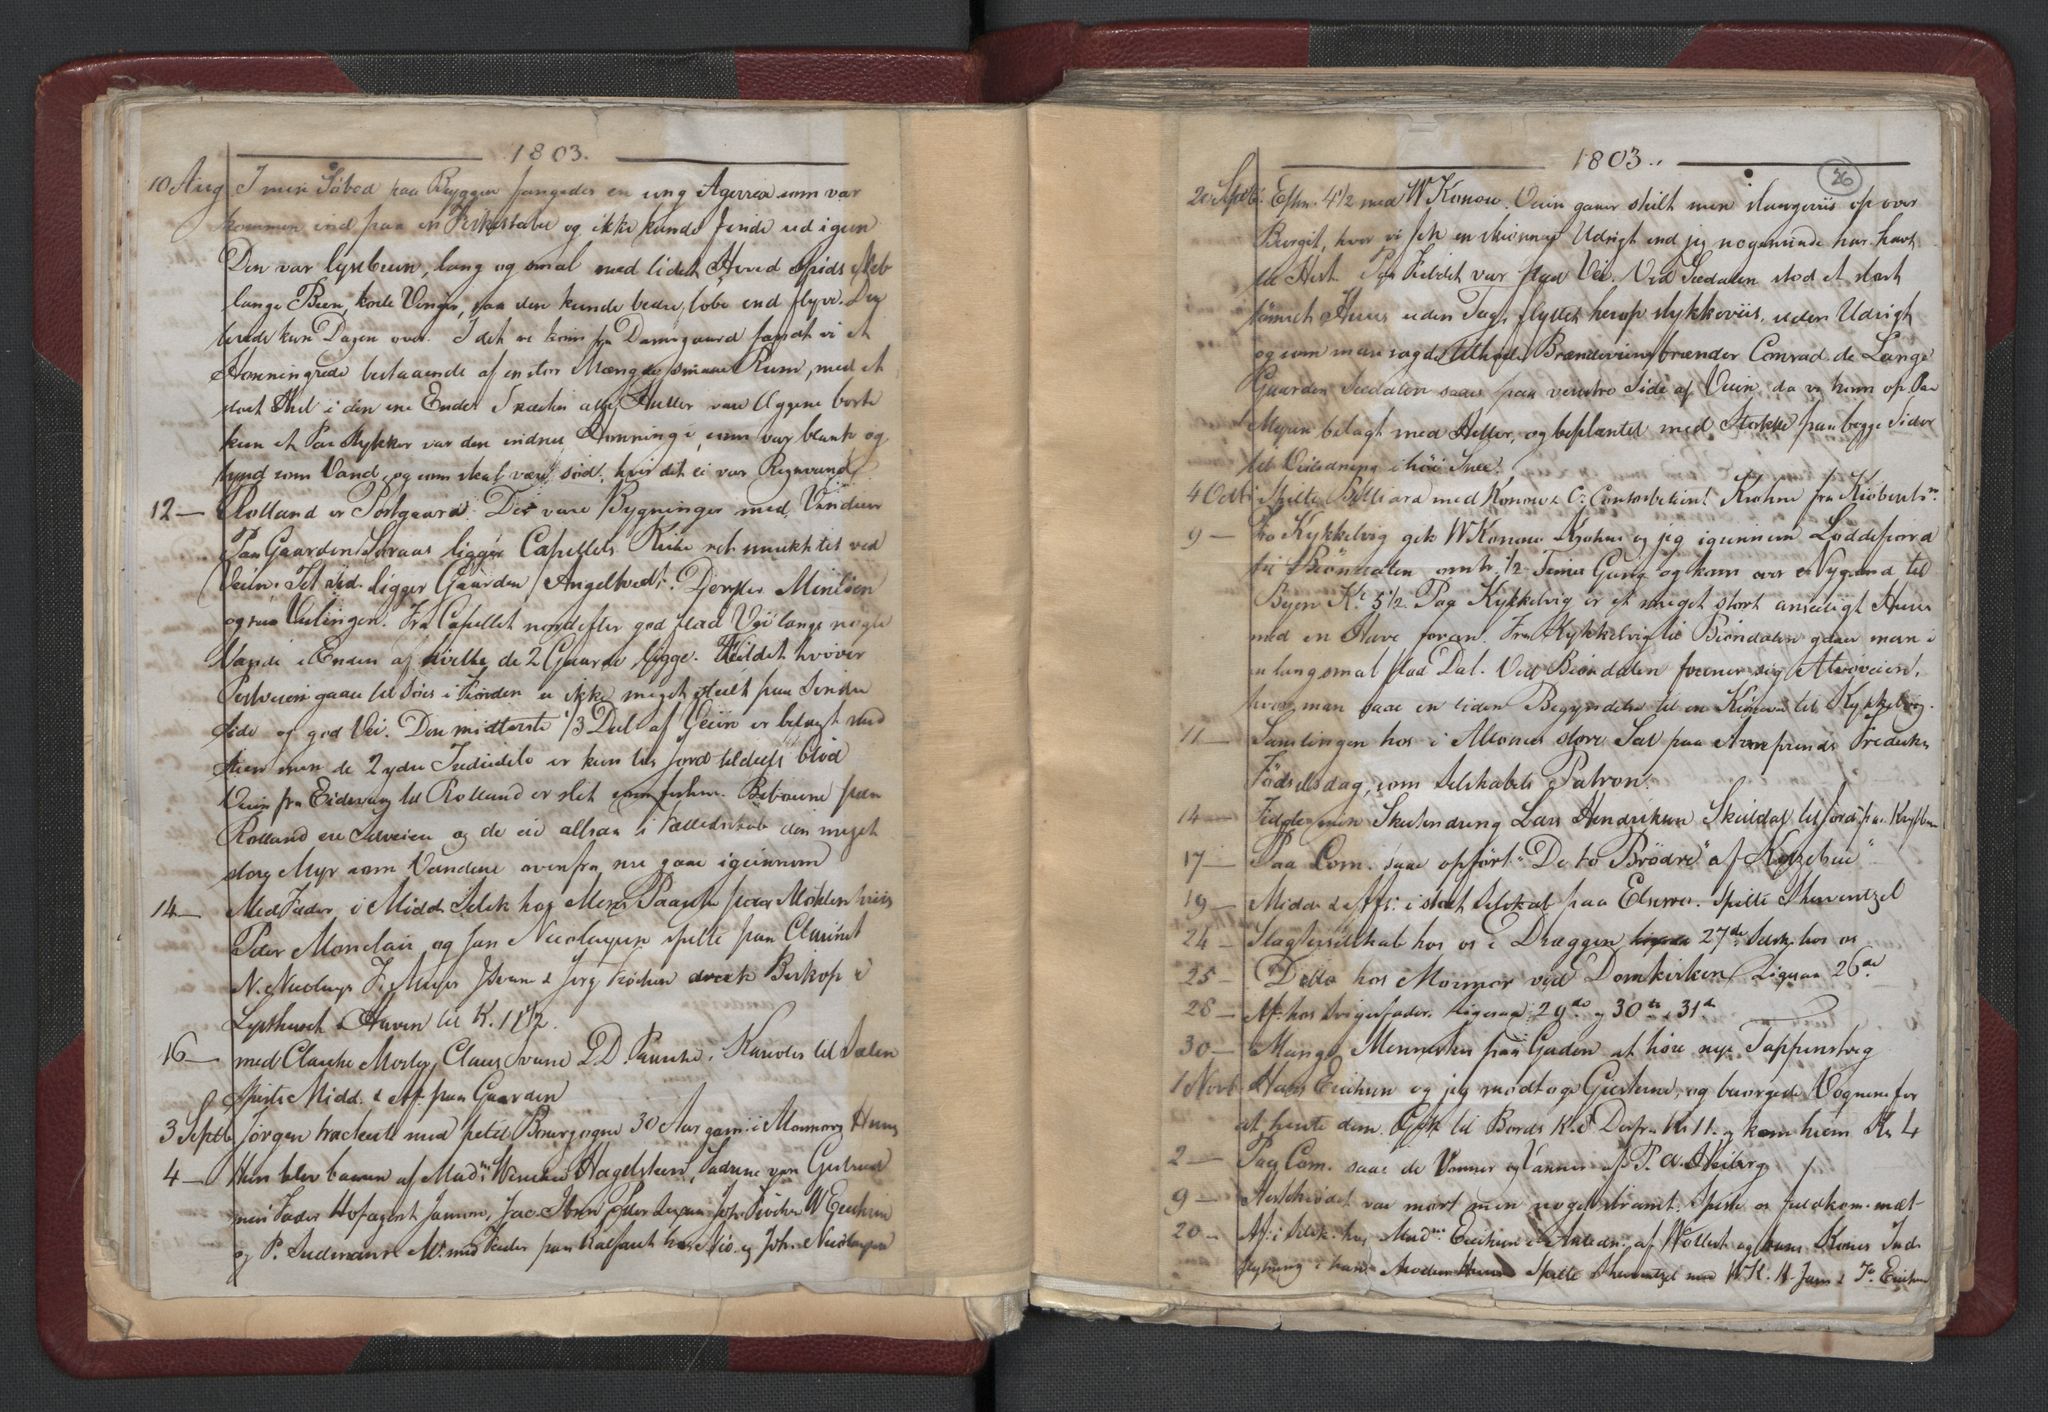 1803.
10 Aug I min Söbod paa Bryggen fangedes en ung Agerrixe som var
kommen ind paa en og ikke kunde finde ud igien
Den var lysebrun, lang og smal med lidet Hoved spids Neb
lange Been, korte Vinger, saa den kunde bedre löbe end flyve. Den
levede kun Dagen over. I det vi kom fra Damsgaard fandt vi et
bestaaende af en stor Mængde smaae Rum, med et
stort Hul i den ene Ende. I næsten alle Huller vare Æggene borte
kun et Par Stykker var der endnu Honning i, som var blank og
tynd som Vand, og som skal være söd, hvis det ei var Regnvand
12 — Rolland er Postgaard. Der vare Bygninger med Vinduer
Paa Gaarden ligger Capellets Kirke net smukt tet ved
Veien. Tet ved ligger Gaarden Angeltvedt.
og saa Fra Capellet nordefter god flad Vei langs nogle
Vande i Enden af hvilke de 2 Gaarde ligge. Fieldet hvorover
Postveien gaaer til er ikke meget steilt paa Söndre
Side og god Vei. Den midterste 1/3 Deel af Veien er belagt med
Steen men de 2 ydre Trediedele er kun lös Jord tildeels blöd
Veien fra Eidsvaag til Rolland er slet Beboerne paa
Rolland ere Selveiere og de eie altsaa i Fælledskab den meget
store Myr som Vandene ovenfra nu gaae igiennem
14 — Med Fader i Midd. Selsk hos
Peder Monclair og Jan Nicolaysen spilte paa Clarinet
N. Nicolays F. Meyer J drak Biskop i
Lysthuset i Haven til K. 11 1/2.
16 — med Claus D Karioler til
spiste Midd. & Aft. paa Gaarden
3 Septbr Jörgen tracterte med petit Bourgogne 30 Aar gam. i Mormors Huus
4 — Han blev baaren af Mad. Wencke Hagelsteen,
min Fader Hofagent Janson, Jac. W Erichsen
og P. med Fader paa Kalfaret hos Nic. og Joh. Nicolaysen
1803.
26
20 Septb. Eftm. 4 1/2 med W Konow. Veien gaaer steilt men slangeviis op over
Bierget, hvor vi fik en skiönner Udsigt end jeg nogensinde har havt
til Hest. Paa Fieldet var flad Vei. Ved Isdalen stod et stort
tömret Huus uden Tag, flyttet herop stykkeviis, uden Udsigt
og som man sagde tilhörte Brændeviinsbrænder Conrad de Lange
Gaarden Isdalen saaes paa venstre Side af Veien, da vi kom op. Paa
Myren belagt med Heller, og beplantet med Stokke paa begge Sider
til Veiledning i höi Snee.
4 Octb. Spilte Billiard med Konow & C: Contorbetient Krohne fra Kiöbenh.
9 — Fra Kykkelvig gik W Konow Krohne og jeg igiennem Loddefiord
til Biöndalen omtr. 1/2 Times Gang og kom over Nygaard til
Byen Kl. 5 1/2. Paa Kykkelvig er et meget stort anseeligt Huus
med en Have foran. Fra Kykkelvig til Biöndalen gaaer man i
en lang smal flad Dal. Ved Biöndalen forener sig Alvöveien,
hvor man saae en liden Begyndelse til en Kiörevei til Kykkelvig.
11 — Samlingen hos i Altonas store Sal paa Arveprinds Frederiks
Födselsdag, som Selskabets Patron.
14 — min Skudsdreng Lars Hendriksen Skieldal til
17 — Paa Com. saae opfört "De to Brödre" af Kotzebue"
19 — Midd. & Aft: i stort Selskab paa Elsesroe. Spilte Sherventzel
24 — Slagterselskab hos os i Dræggen 27de Selsk. hos os
25 — Ditto hos Mormor ved Domkirken Ligesaa 26de
28 — Aft. hos Svigerfader. ligesaa 29de og 30te, 31te
30 — Mange Mennesker paa Gaden at höre nye Tappenstreg
1 Novb. Hans Erichsen og jeg modtoge Giesterne, og besörgede Vognene for
at hente dem. Gik til Bords Kl. Derfra Kl 11. og kom hiem Kl 4
2 — Paa Com. saae de Vonner og Vanner af P. A. Heiberg
9 — var men noget stramt. Spilte os fuldkom. mæt
20 — Af: i Selsk. hos Mad. Erichsen i Anledn: af Wollert og hans Kones Ind-
flytning i hans Moders Huus Spilte Sherventzel med W K. H Jans & Erichsen